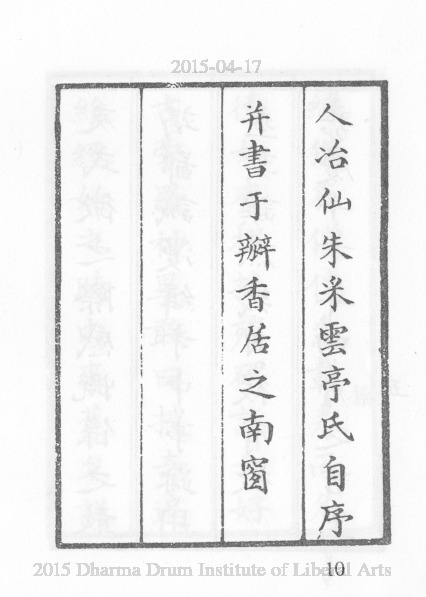 2015-04-17
人冶仙朱采雲亭氏自序
并書于瓣香居之南窗
10
2015 Dharma Drum Institute of Liberal Arts